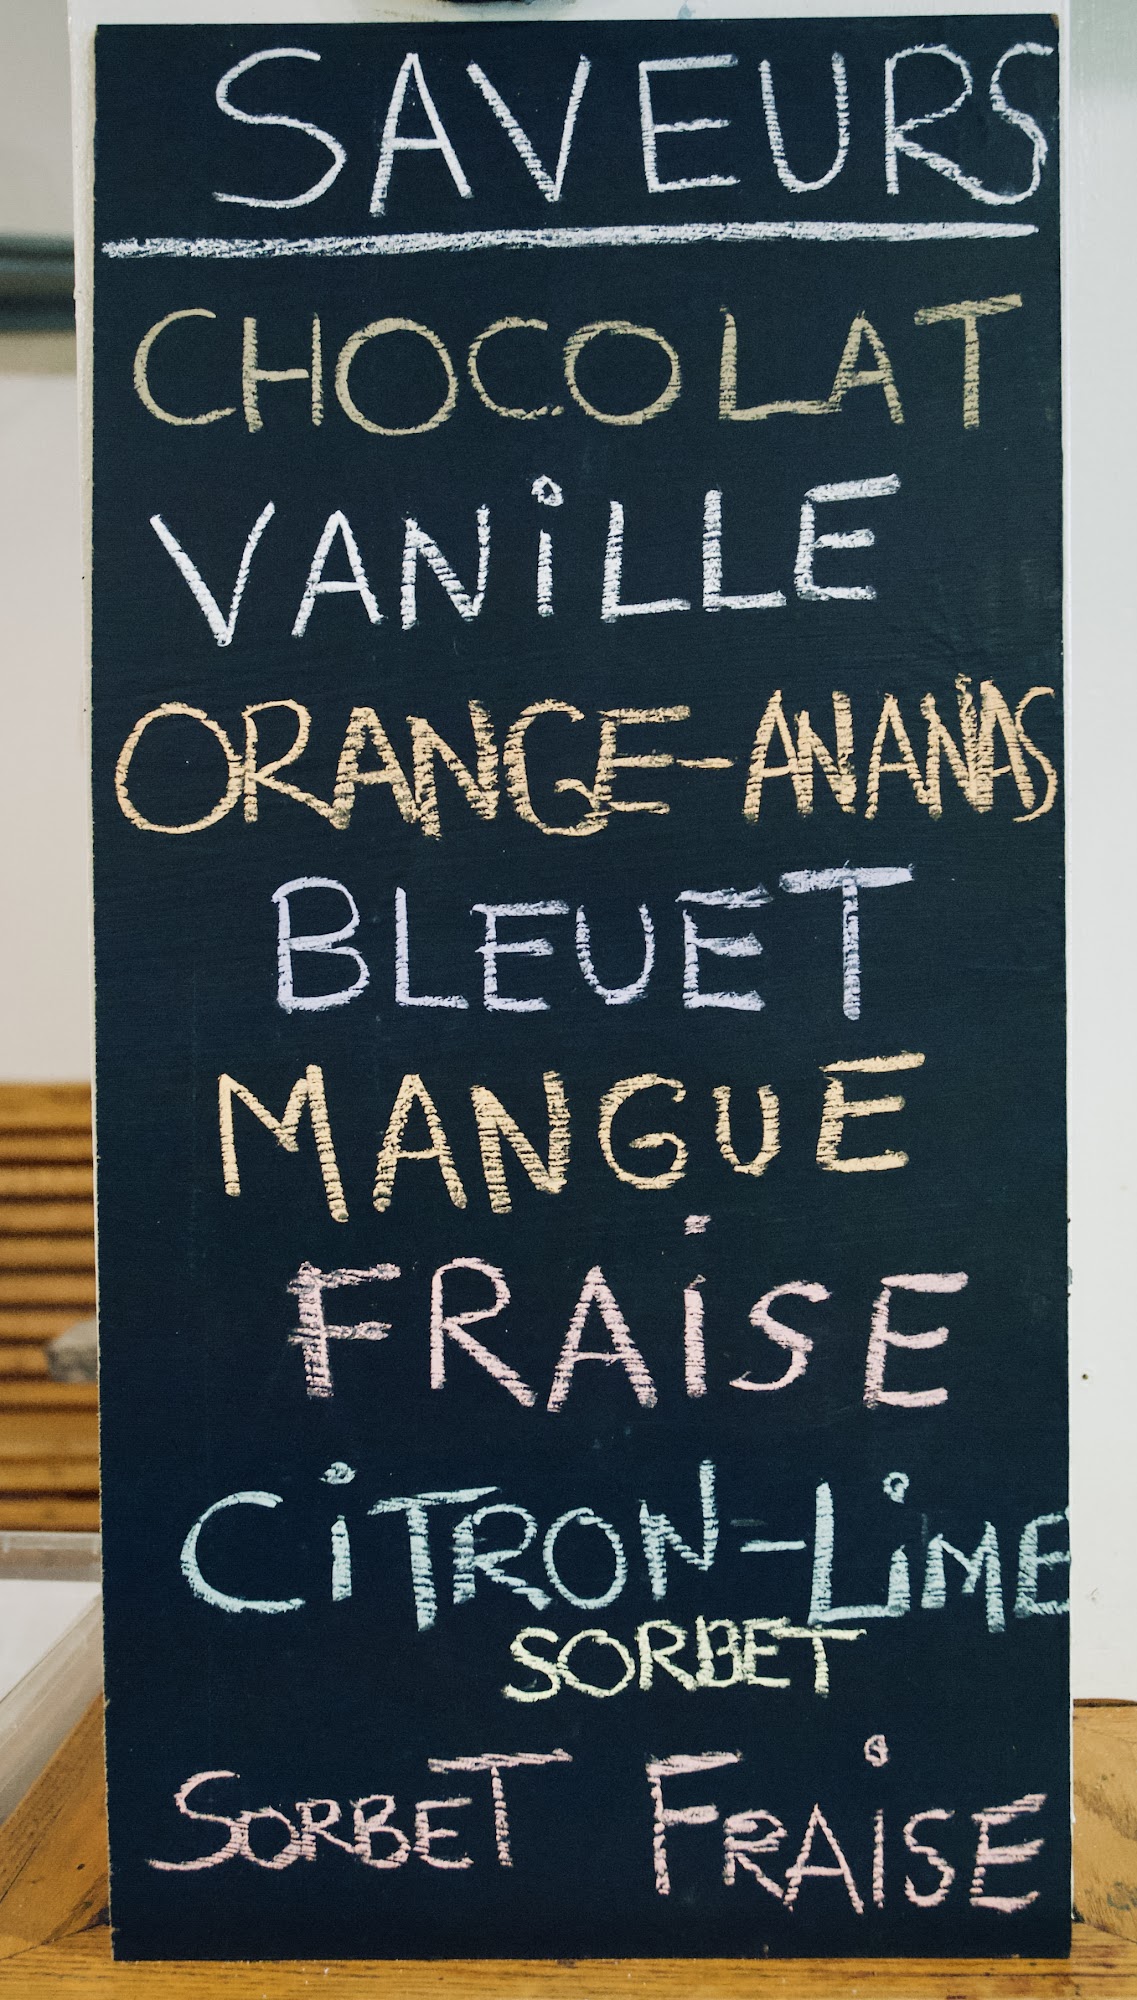 SAVEURS
CHOCOLAT
VANiLLE
ORANGE-ANANAS
BLEUET
MANGUE
FRAiSE
CiTRON-LiME
SORBET
SORBET FRAiSE